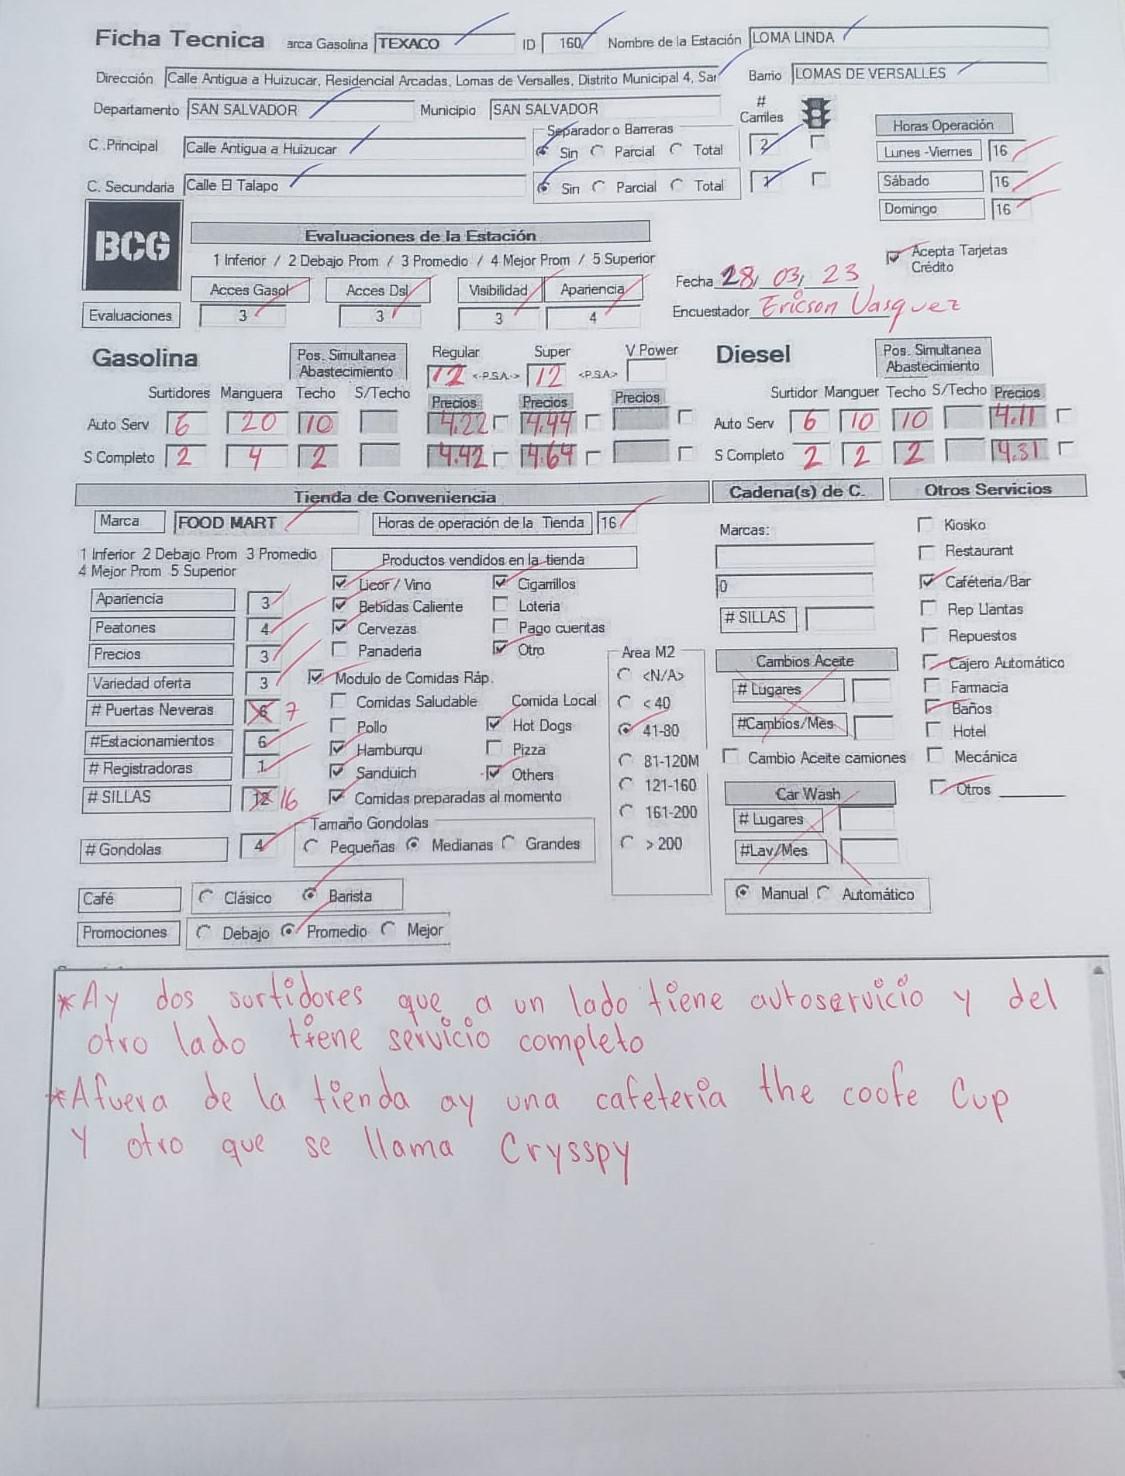 Ficha Tecnica arca Gasolina TEXACO ID 160 Nombre de la Estación LOMA LINDA
Dirección Calle Antigua a Huizucar, Residencial Arcadas, Lomas de Versalles, Distrito Municipal 4, Sar Barrio LOMAS DE VERSALLES
Departamento SAN SALVADOR Municipio SAN SALVADOR # Carriles
Horas Operación
C .Principal Calle Antigua a Huizucar Separador o Barreras Sin Parcial Total 2
Lunes -Viernes 16
C. Secundaria Calle El Talapo Sin Parcial Total 1
Sábado 16
Domingo 16
BCG
Evaluaciones de la Estación
1 Inferior / 2 Debajo Prom / 3 Promedio / 4 Mejor Prom / 5 Superior
Acepta Tarjetas Crédito
Acces Gasol Acces Dsl Visibilidad Apariencia
Fecha 28, 03, 23
Evaluaciones 3 3 3 4
Encuestador Ericson Vasquez
Gasolina Pos. Simultanea Abastecimiento Regular 12 <-P.S.A.-> Super 12 <P.S.A> V Power
Diesel Pos. Simultanea Abastecimiento
Surtidores Manguera Techo S/Techo Precios Precios Precios
Surtidor Manguer Techo S/Techo Precios
Auto Serv 6 20 10 4.22 4.44
Auto Serv 6 10 10 4.11
S Completo 2 4 2 4.42 4.64
S Completo 2 2 2 4.31
Tienda de Conveniencia Cadena(s) de C. Otros Servicios
Marca FOOD MART Horas de operación de la Tienda 16
1 Inferior 2 Debajo Prom 3 Promedio
4 Mejor Prom 5 Superior
Apariencia 3
Peatones 4
Precios 3
Variedad oferta 3
# Puertas Neveras 6 7
#Estacionamientos 6
# Registradoras 1
# SILLAS 12 16
# Gondolas 4
Productos vendidos en la tienda
Licor / Vino Cigarrillos
Bebidas Caliente Loteria
Cervezas Pago cuentas
Panaderia Otro
Modulo de Comidas Ráp.
Comidas Saludable Comida Local
Pollo Hot Dogs
Hamburqu Pizza
Sandüich Others
Comidas preparadas al momento
Tamaño Gondolas
Pequeñas Medianas Grandes
Area M2
<N/A>
< 40
41-80
81-120M
121-160
161-200
> 200
Marcas:
0
# SILLAS
Cambios Aceite
# Lugares
#Cambios/Mes
Cambio Aceite camiones
Car Wash
# Lugares
#Lav/Mes
Manual Automático
Kiosko
Restaurant
Caféteria/Bar
Rep Llantas
Repuestos
Cajero Automático
Farmacia
Baños
Hotel
Mecánica
Otros
Café Clásico Barista
Promociones Debajo Promedio Mejor
*Ay dos surtidores que a un lado tiene autoservicio y del
otro lado tiene servicio completo
*Afuera de la tienda ay una cafeteria the coofe Cup
Y otro que se llama Crysspy